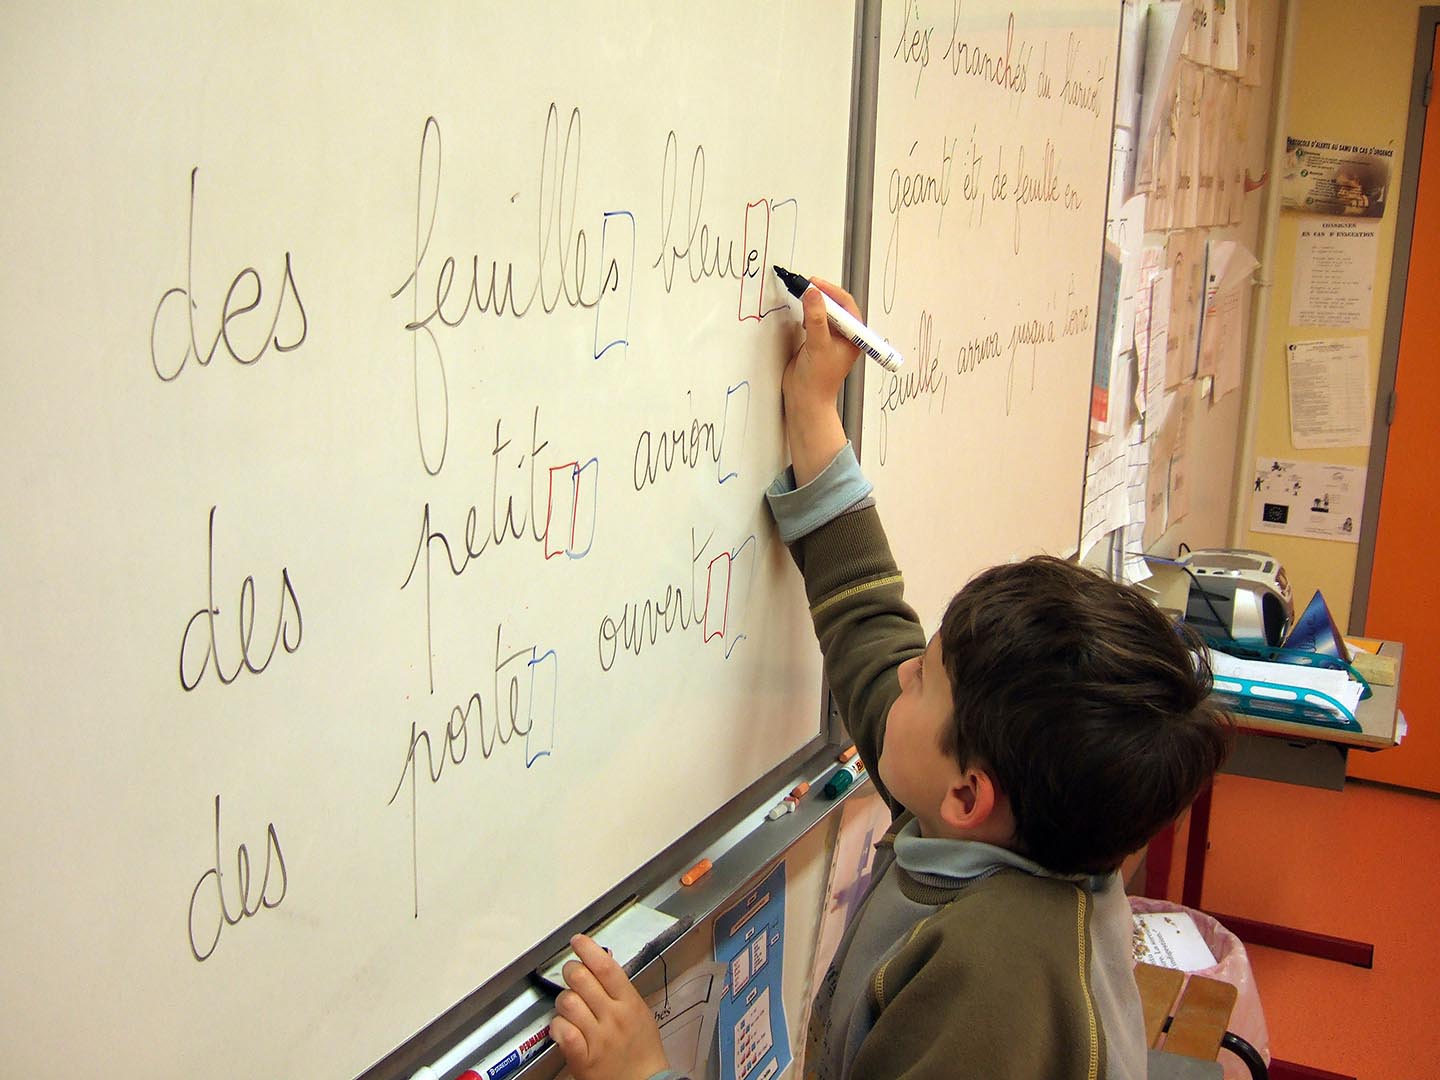 des feuilles bleue
des petit avion
des porte ouvert
les branches du haricot
géant et, de feuille en
feuille, arriva jusqu'à terre.
PROTOCOLE D'ALERTE AU SAMU EN CAS D'URGENCE
CONSIGNES
EN CAS D'EVACUATION
STAEDTLER PERMANENT